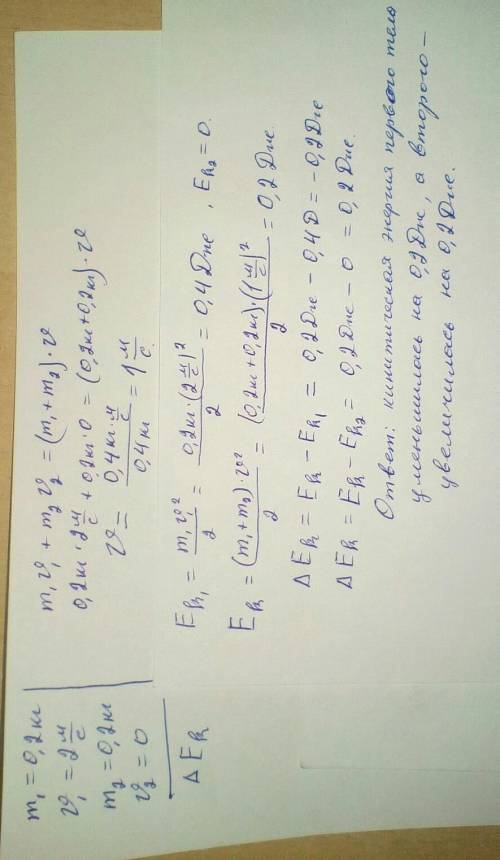 m₁ = 0,2 кг
v₁ = 2 м/с
m₂ = 0,2 кг
v₂ = 0
ΔEk
m₁v₁ + m₂v₂ = (m₁ + m₂)·v
0,2 кг · 2 м/с + 0,2 кг · 0 = (0,2 кг + 0,2 кг) · v
v = 0,4 кг · м/с / 0,4 кг = 1 м/с
Ek₁ = m₁v₁²/2 = 0,2 кг · (2 м/с)²/2 = 0,4 Дже, Ek₂ = 0.
Ek = (m₁ + m₂)·v²/2 = (0,2 кг + 0,2 кг) · (1 м/с)²/2 = 0,2 Дже.
ΔEk = Ek − Ek₁ = 0,2 Дже − 0,4 Д = −0,2 Дже
ΔEk = Ek − Ek₂ = 0,2 Дже − 0 = 0,2 Дже.
Ответ: кинитическая энергия первого тело
уменьшилась на 0,2 Дже, а второго –
увеличилась на 0,2 Дже.